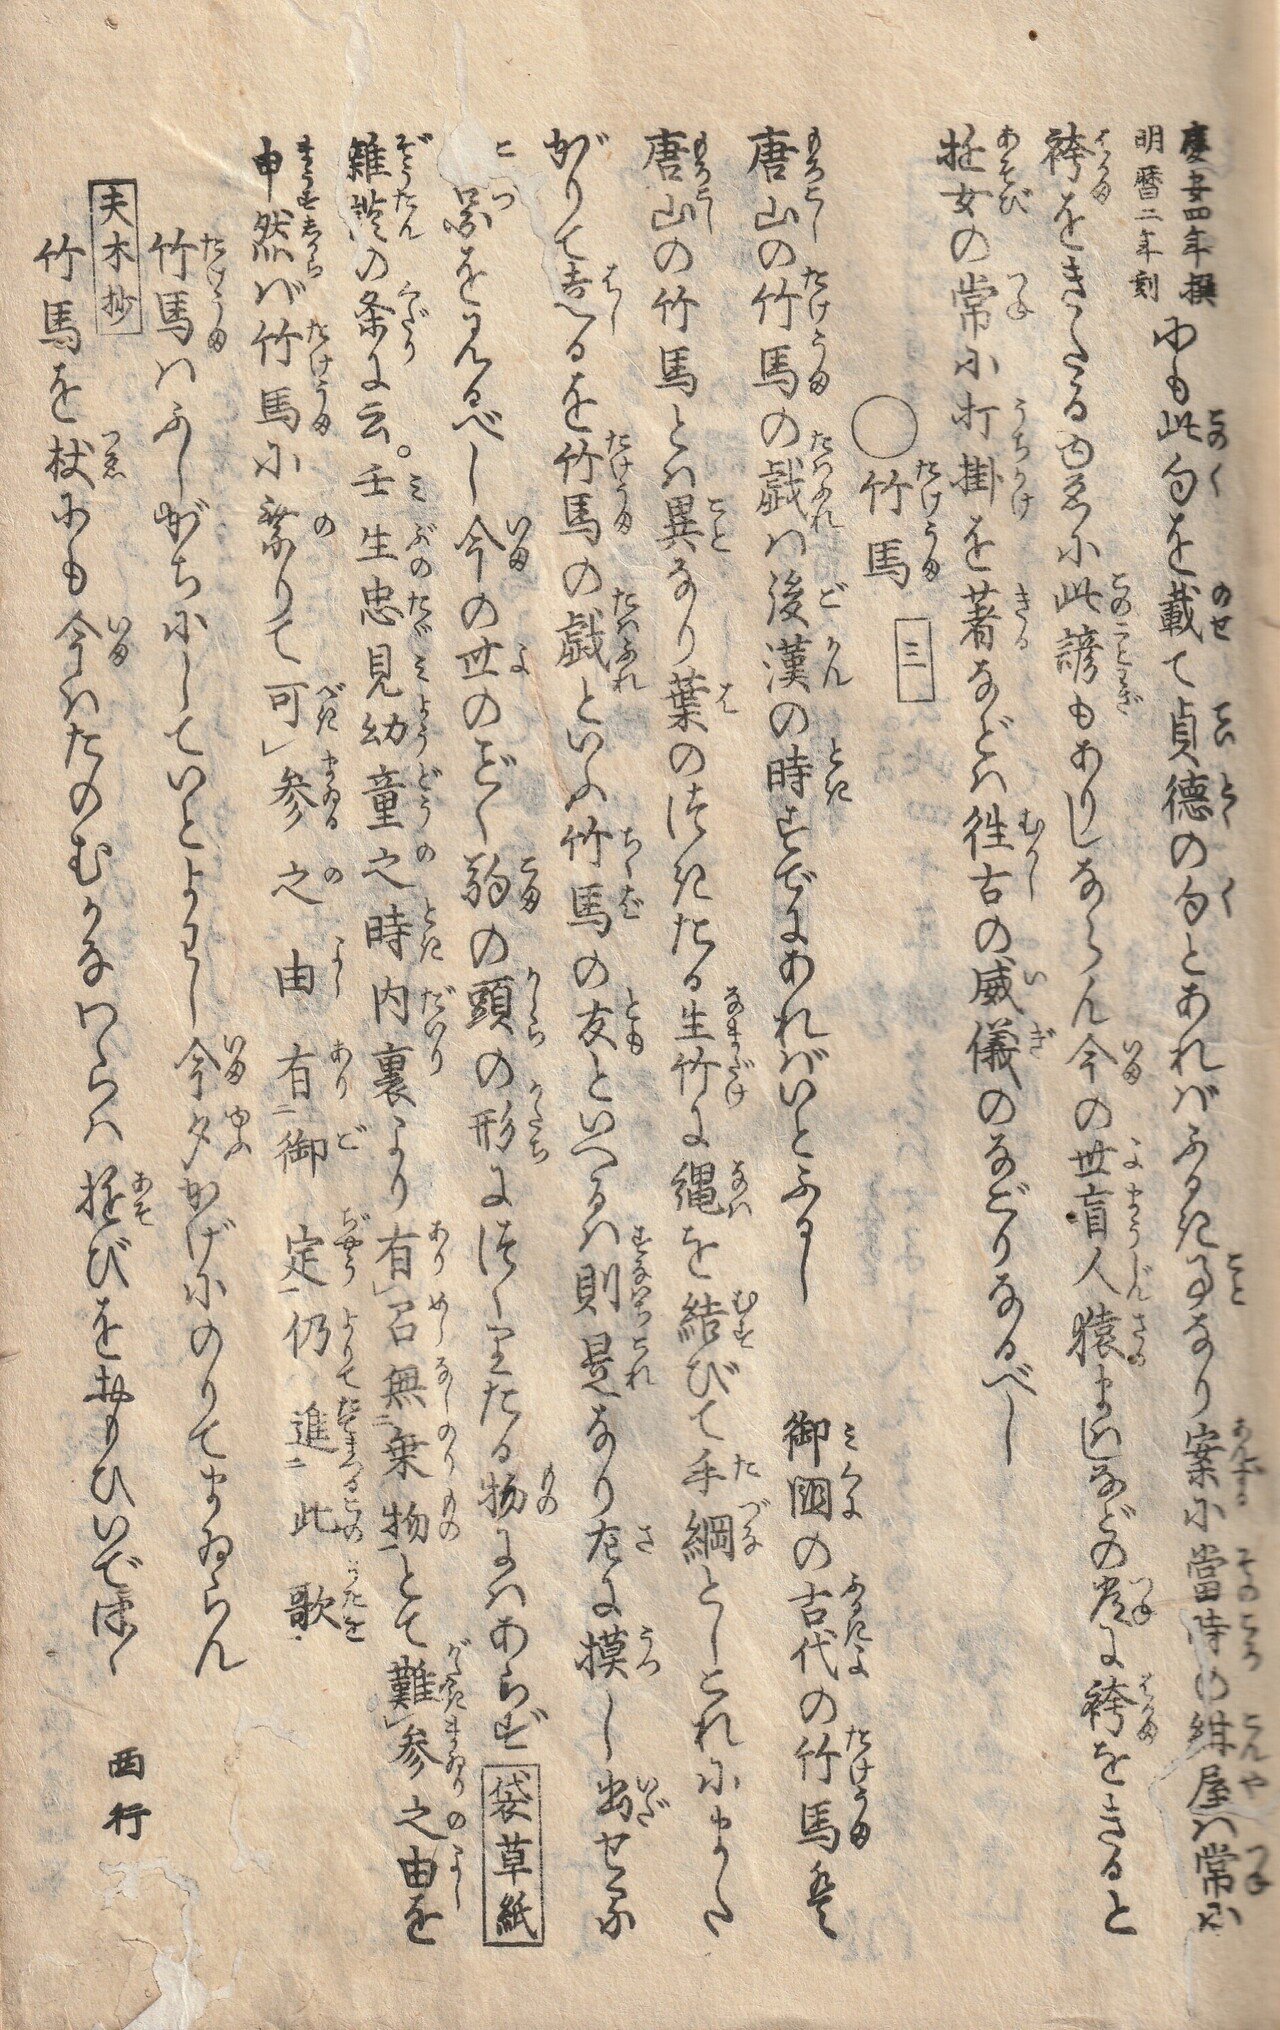 慶安四年撰
明暦二年刻
にも此句を載て貞徳の句とあればふるき事なり案に當時の紺屋は常に
袴をきたるゆゑに此諺もありしならん今の世盲人猿まはしなどの常に袴をきると
遊女の常に打掛を著などは徃古の威儀のなごりなるべし
○竹馬 三
唐山の竹馬の戯は後漢の時すでにあればいとふるし 御國の古代の竹馬は
唐山の竹馬とは異なり葉のつきたる生竹に縄を結びて手綱としこれにまた
がりて走るを竹馬の戯といふ竹馬の友といへるは則是なり左に摸し出せる
二図を見るべし今の世のごとく駒の頭の形につくりたる物にはあらず 袋草紙
雑談の条に云。壬生忠見幼童之時内裏より有召無乗物とて難参之由を
申然ば竹馬に乗りて可参之由有御定仍進此歌
竹馬はふしがちにしていとよわし今夕かげにのりてまゐらん
夫木抄
竹馬を杖にも今はたのむかなわらは遊びをおもひいでつゝ 西行